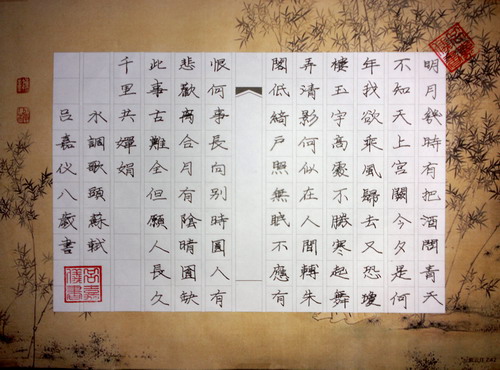 明月幾時有把酒問青天
不知天上宮闕今夕是何
年我欲乘風歸去又恐瓊
樓玉宇高處不勝寒起舞
弄清影何似在人間轉朱
閣低綺戶照無眠不應有
恨何事長向別時圓人有
悲歡離合月有陰晴圓缺
此事古難全但願人長久
千里共嬋娟
水調歌頭蘇軾
呂嘉仪八歲書